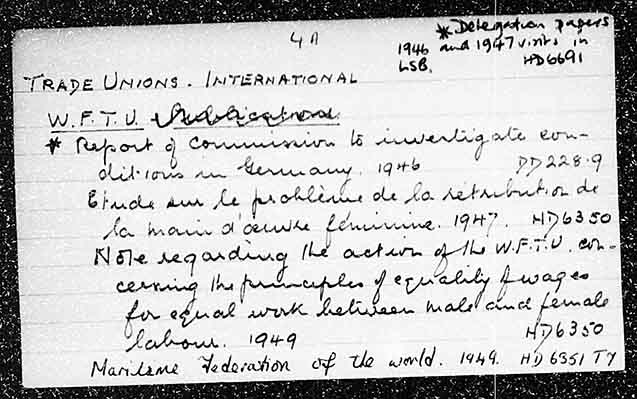 4A
* Delegation papers
1946 and 1947 visits in
LSB. HD6691
TRADE UNIONS. INTERNATIONAL
W.F.T.U. Publications
* Report of Commission to investigate con-
ditions in Germany. 1946 DD228.9
Etude sur le problème de la rétribution de
la main d'œuvre féminine. 1947. HD6350
Note regarding the action of the W.F.T.U. con-
cerning the principles of equality of wages
for equal work between male and female
labour. 1949 HD6350
Maritime Federation of the world. 1949. HD6351 T7